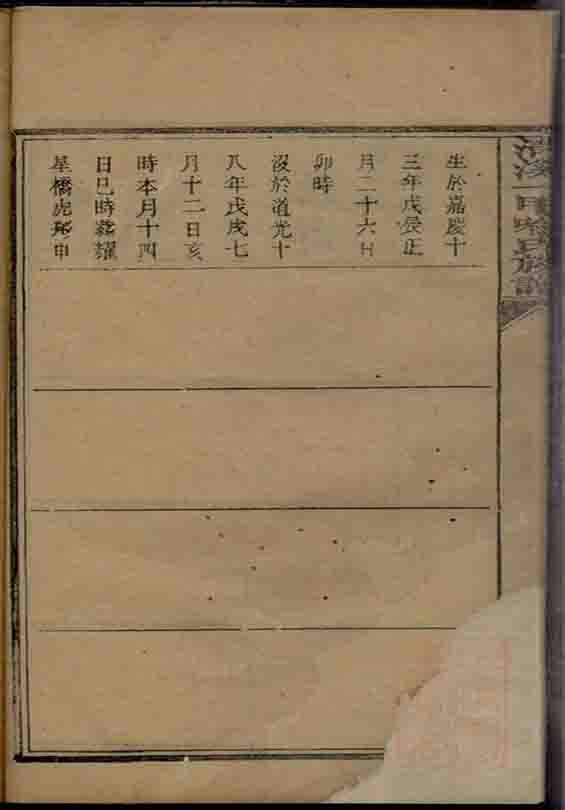 生於嘉慶十
三年戊辰正
月二十六日
卯時
沒於道光十
八年戊戌七
月十二日亥
時本月十四
日巳時葬
星橋虎形申
氏族譜